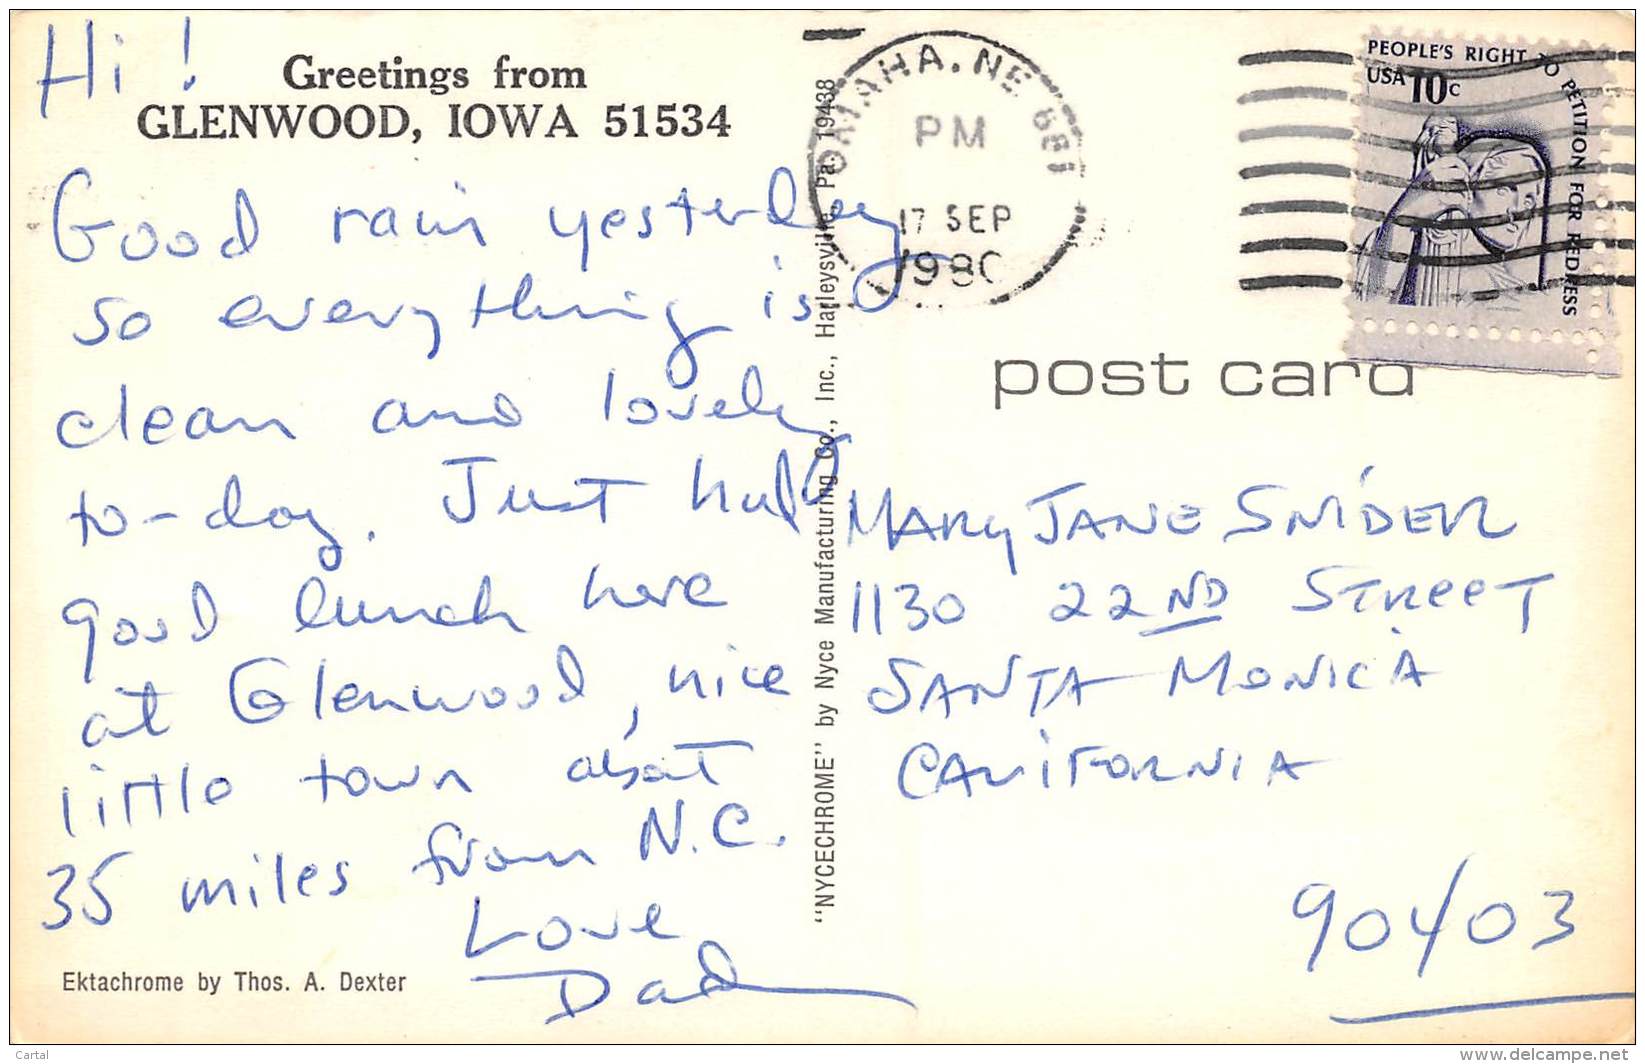 Hi!
Greetings from
GLENWOOD, IOWA 51534
Good rain yesterday
so everything is
clean and lovely
to-day. Just had
good lunch here
at Glenwood, nice
little town about
35 miles from N.C.
Love
Dad
Ektachrome by Thos. A. Dexter
"NYCECHROME" by Nyce Manufacturing Co., Inc., Harleysville, Pa. 19438
OMAHA, NE 681
PM
17 SEP
1980
PEOPLE'S RIGHT TO PETITION FOR REDRESS
USA 10c
post card
MARY JANE SNIDER
1130 22ND STREET
SANTA MONICA
CALIFORNIA
90403
Cartal
www.delcampe.net